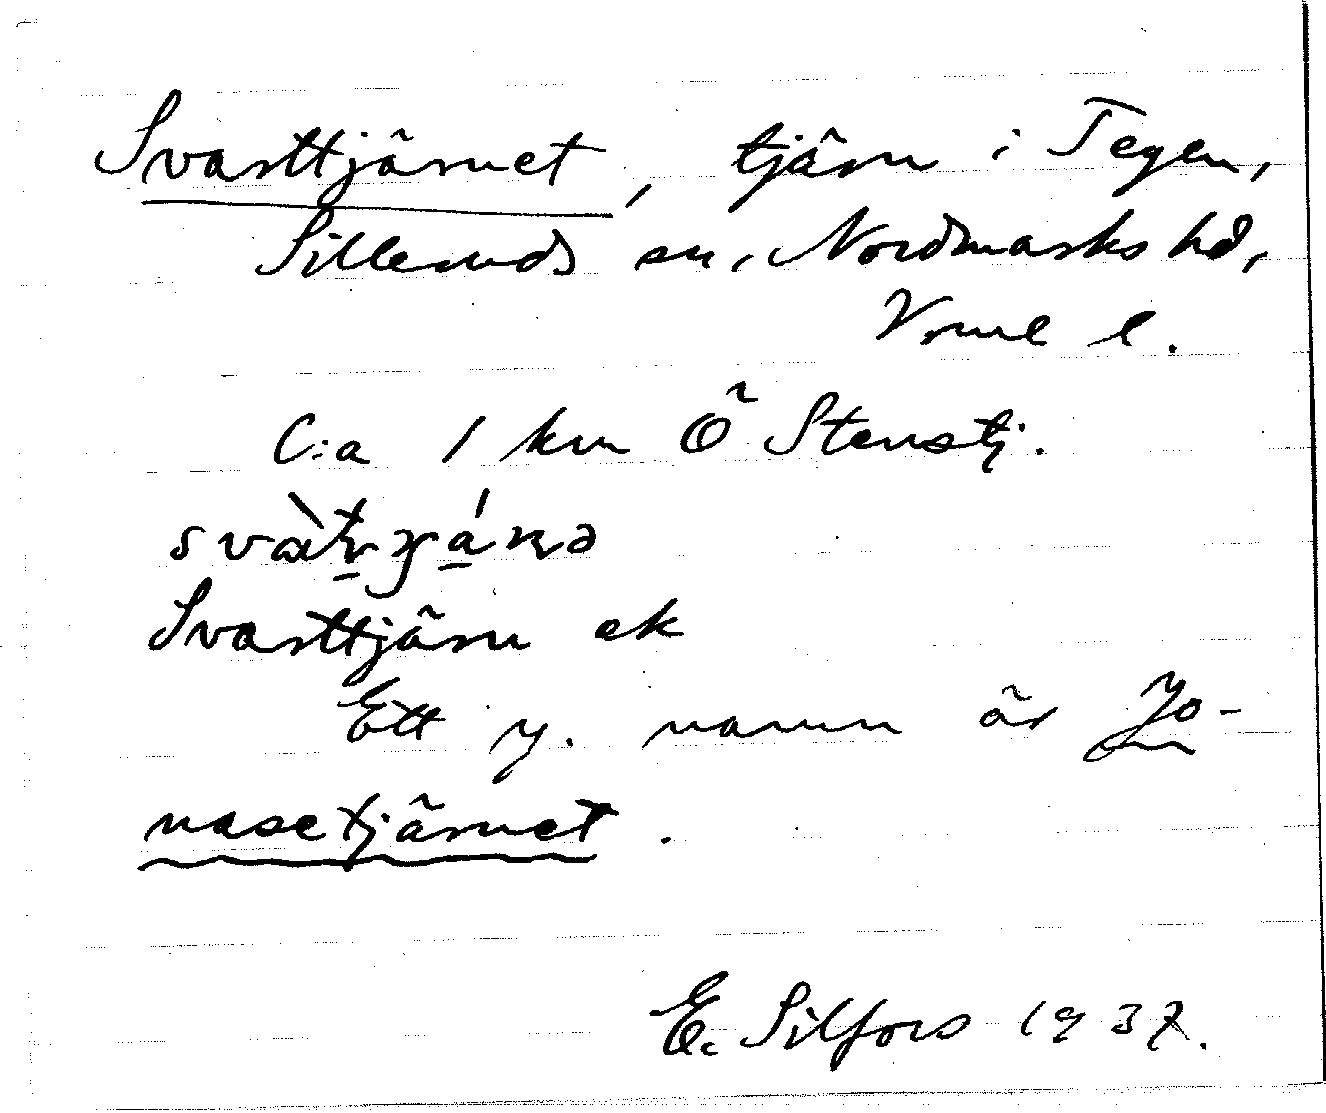 Svarttjärnet, tjärn i Tegen,
Silleruds sn, Nordmarks hd,
Vrml l.
C:a 1 km Ö Stenstj.
Svarttjärn ek
Ett y. namn är Jo-
nasetjärnet.
E. Silfors 1937.